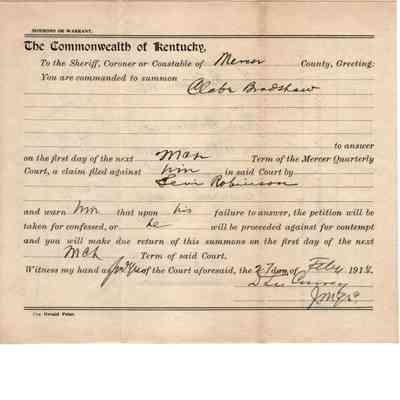 SUMMONS OR WARRANT.
The Commonwealth of Kentucky,
To the Sheriff, Coroner or Constable of Mercer County, Greeting:
You are commanded to summon
Bradshaw
to answer
on the first day of the next Mch Term of the Mercer Quarterly
Court, a claim filed against him in said Court by
Levi Robinson
and warn him that upon his failure to answer, the petition will be
taken for confessed, or he will be proceeded against for contempt
and you will make due return of this summons on the first day of the next
Mch Term of said Court.
Witness my hand as Judge of the Court aforesaid, the 27 day of Feby 191